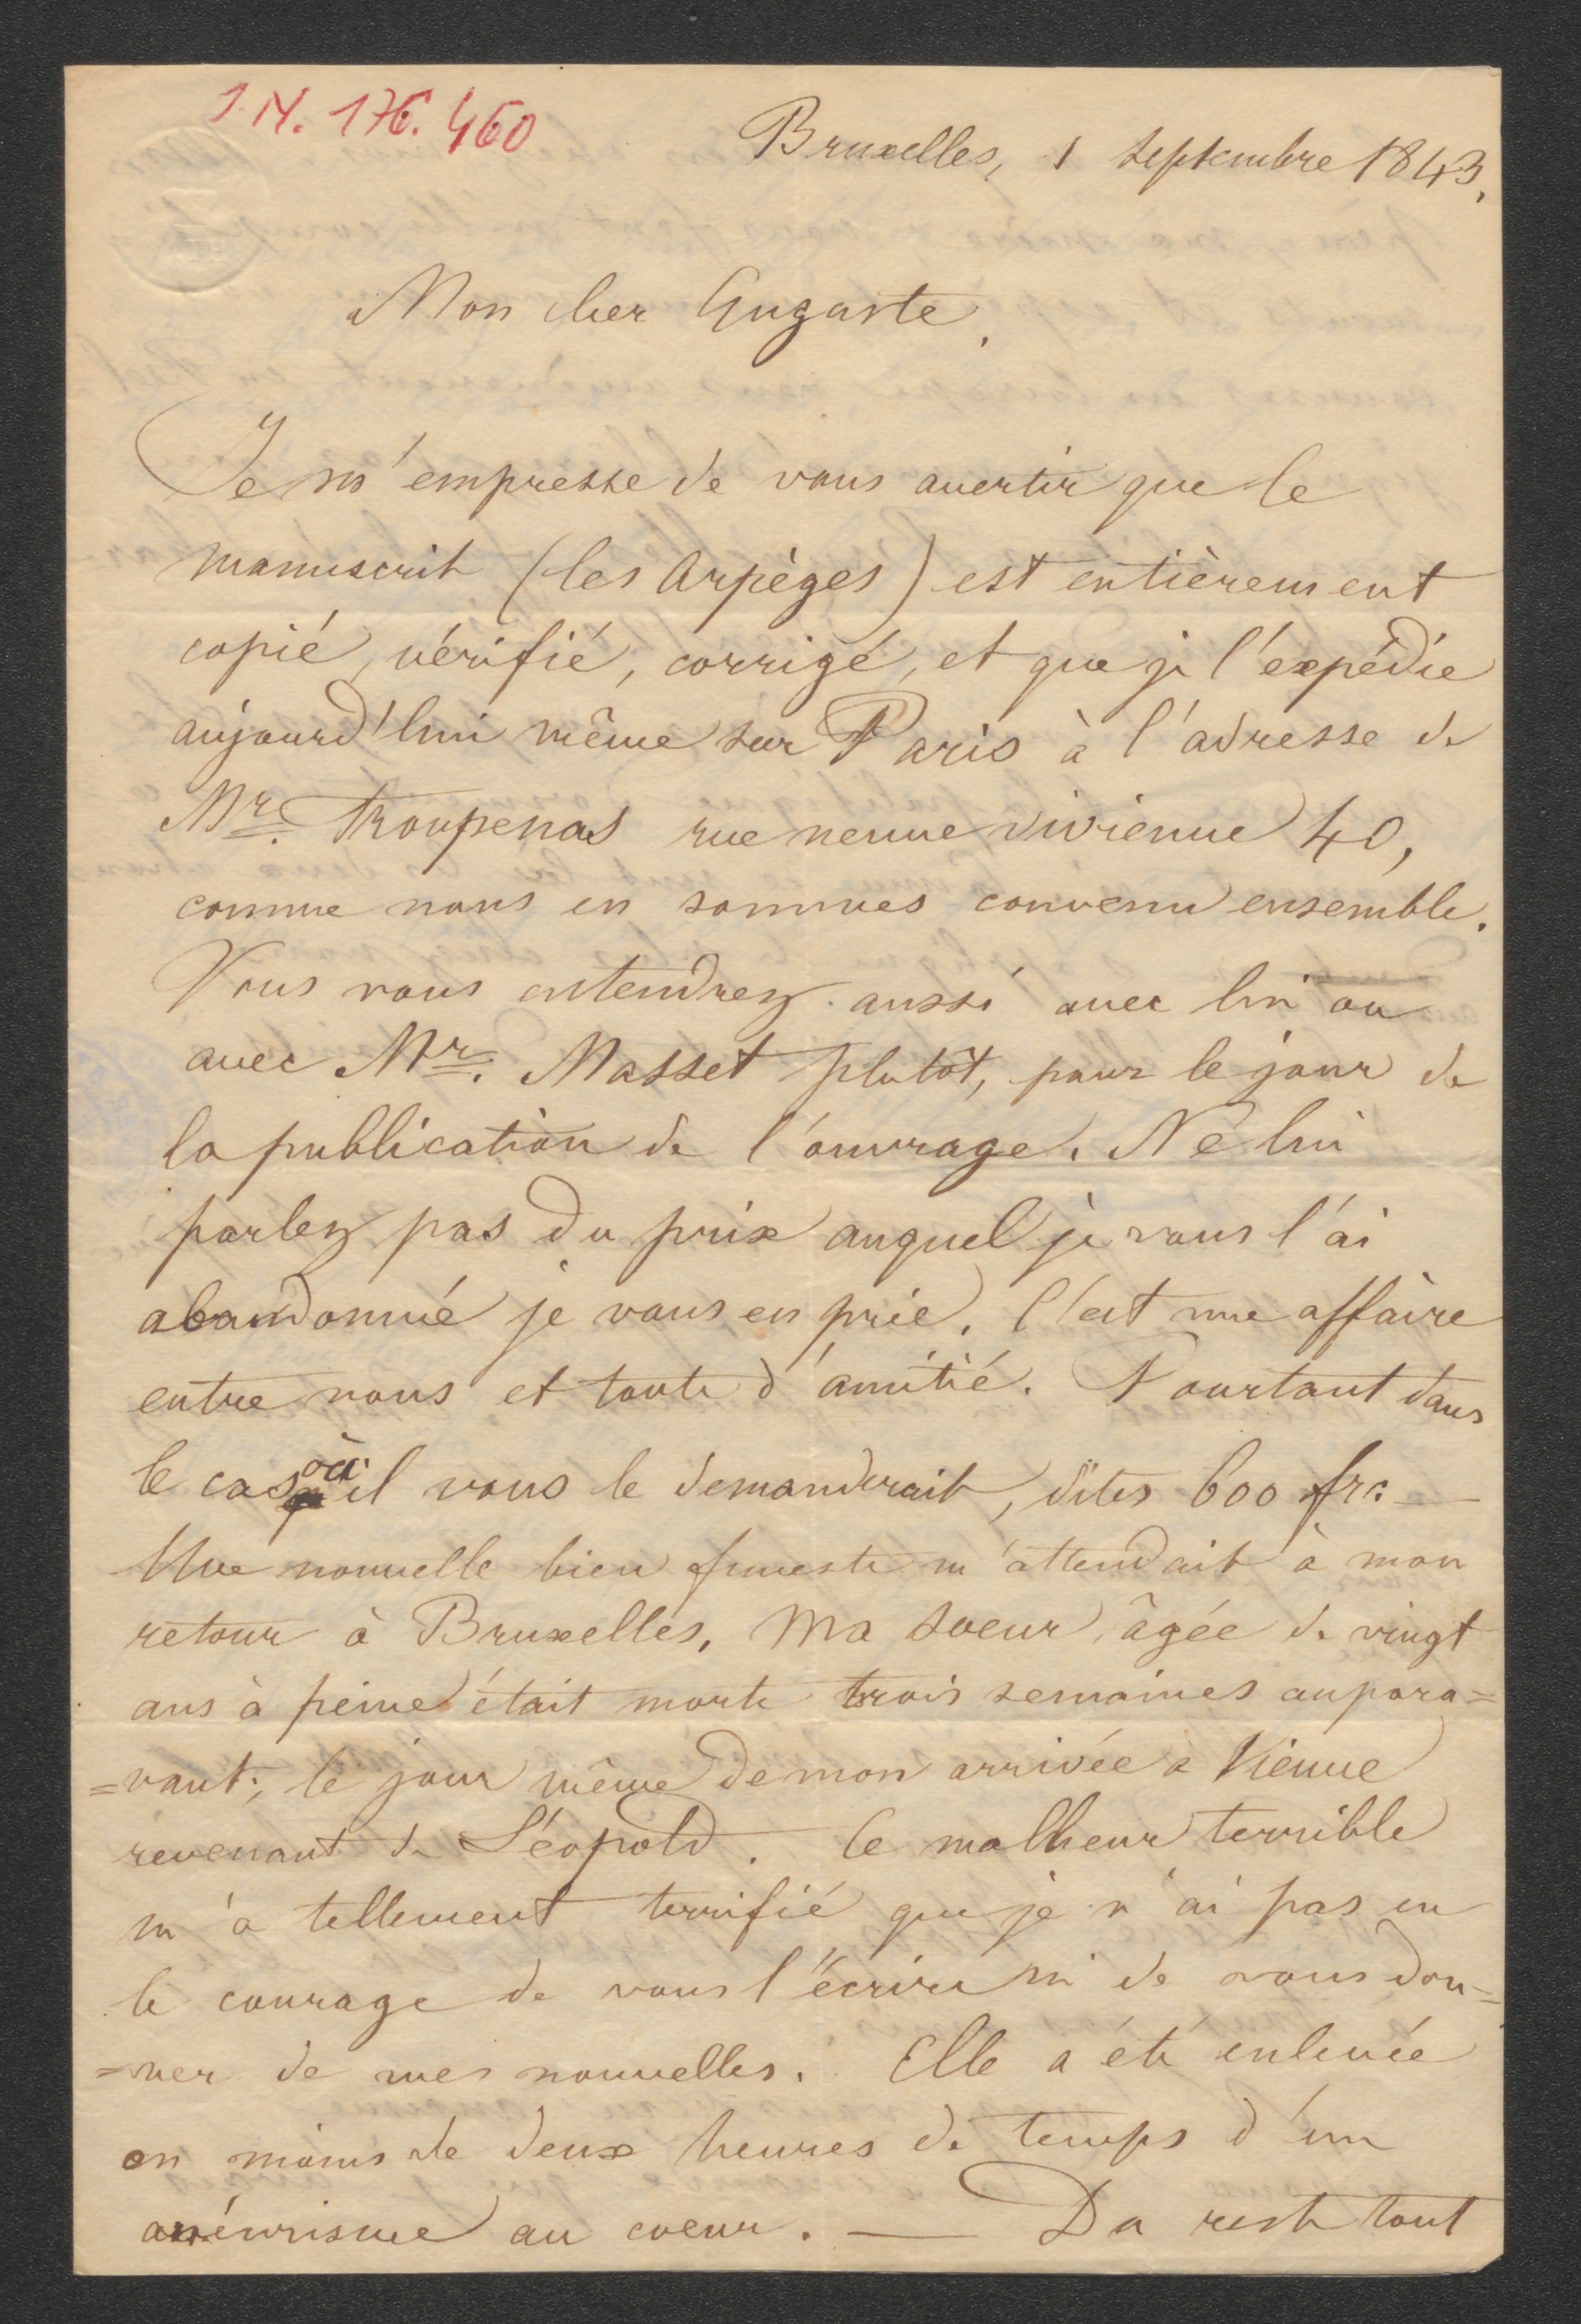 I N. 176.460
Bruxelles, 1 Septembre 1843.
Mon cher Auguste.
Je m'empresse de vous avertir que le
manuscrit (les Arpèges) est entièrement
copié, vérifié, corrigé, et que je l'expédie
aujourd'hui même sur Paris à l'adresse de
Mr. Troupenas rue neuve vivienne 40,
comme nous en sommes convenu ensemble.
Vous vous entendrez aussi avec lui ou
avec Mr. Masset plutôt, pour le jour de
la publication de l'ouvrage. Ne lui
parlez pas du prix auquel je vous l'ai
abandonné je vous en prie. C'est une affaire
entre nous et toute d'amitié. Pourtant dans
le cas où il vous le demanderait, dites 600 frs. —
Une nouvelle bien funeste m'attendait à mon
retour à Bruxelles. Ma soeur, âgée de vingt
ans à peine était morte trois semaines aupara=
=vant; le jour même de mon arrivée à Vienne
revenant de Léopold. Ce malheur terrible
m'a tellement terrifié que je n'ai pas eu
le courage de vous l'écrire ni de vous don=
=ner de mes nouvelles. Elle a été enlevée
en moins de deux heures de temps d'un
anévrisme au coeur. — Du reste tout